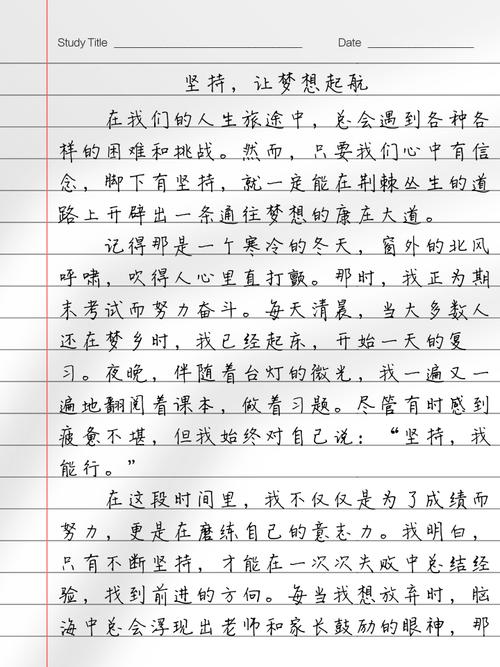 Study Title
Date
坚持，让梦想起航
在我们的人生旅途中，总会遇到各种各
样的困难和挑战。然而，只要我们心中有信
念，脚下有坚持，就一定能在荆棘丛生的道
路上开辟出一条通往梦想的康庄大道。
记得那是一个寒冷的冬天，窗外的北风
呼啸，吹得人心里直打颤。那时，我正为期
末考试而努力奋斗。每天清晨，当大多数人
还在梦乡时，我已经起床，开始一天的复
习。夜晚，伴随着台灯的微光，我一遍又一
遍地翻阅着课本，做着习题。尽管有时感到
疲惫不堪，但我始终对自己说：“坚持，我
能行。”
在这段时间里，我不仅仅是为了成绩而
努力，更是在磨练自己的意志力。我明白，
只有不断坚持，才能在一次次失败中总结经
验，找到前进的方向。每当我想放弃时，脑
海中总会浮现出老师和家长鼓励的眼神，那